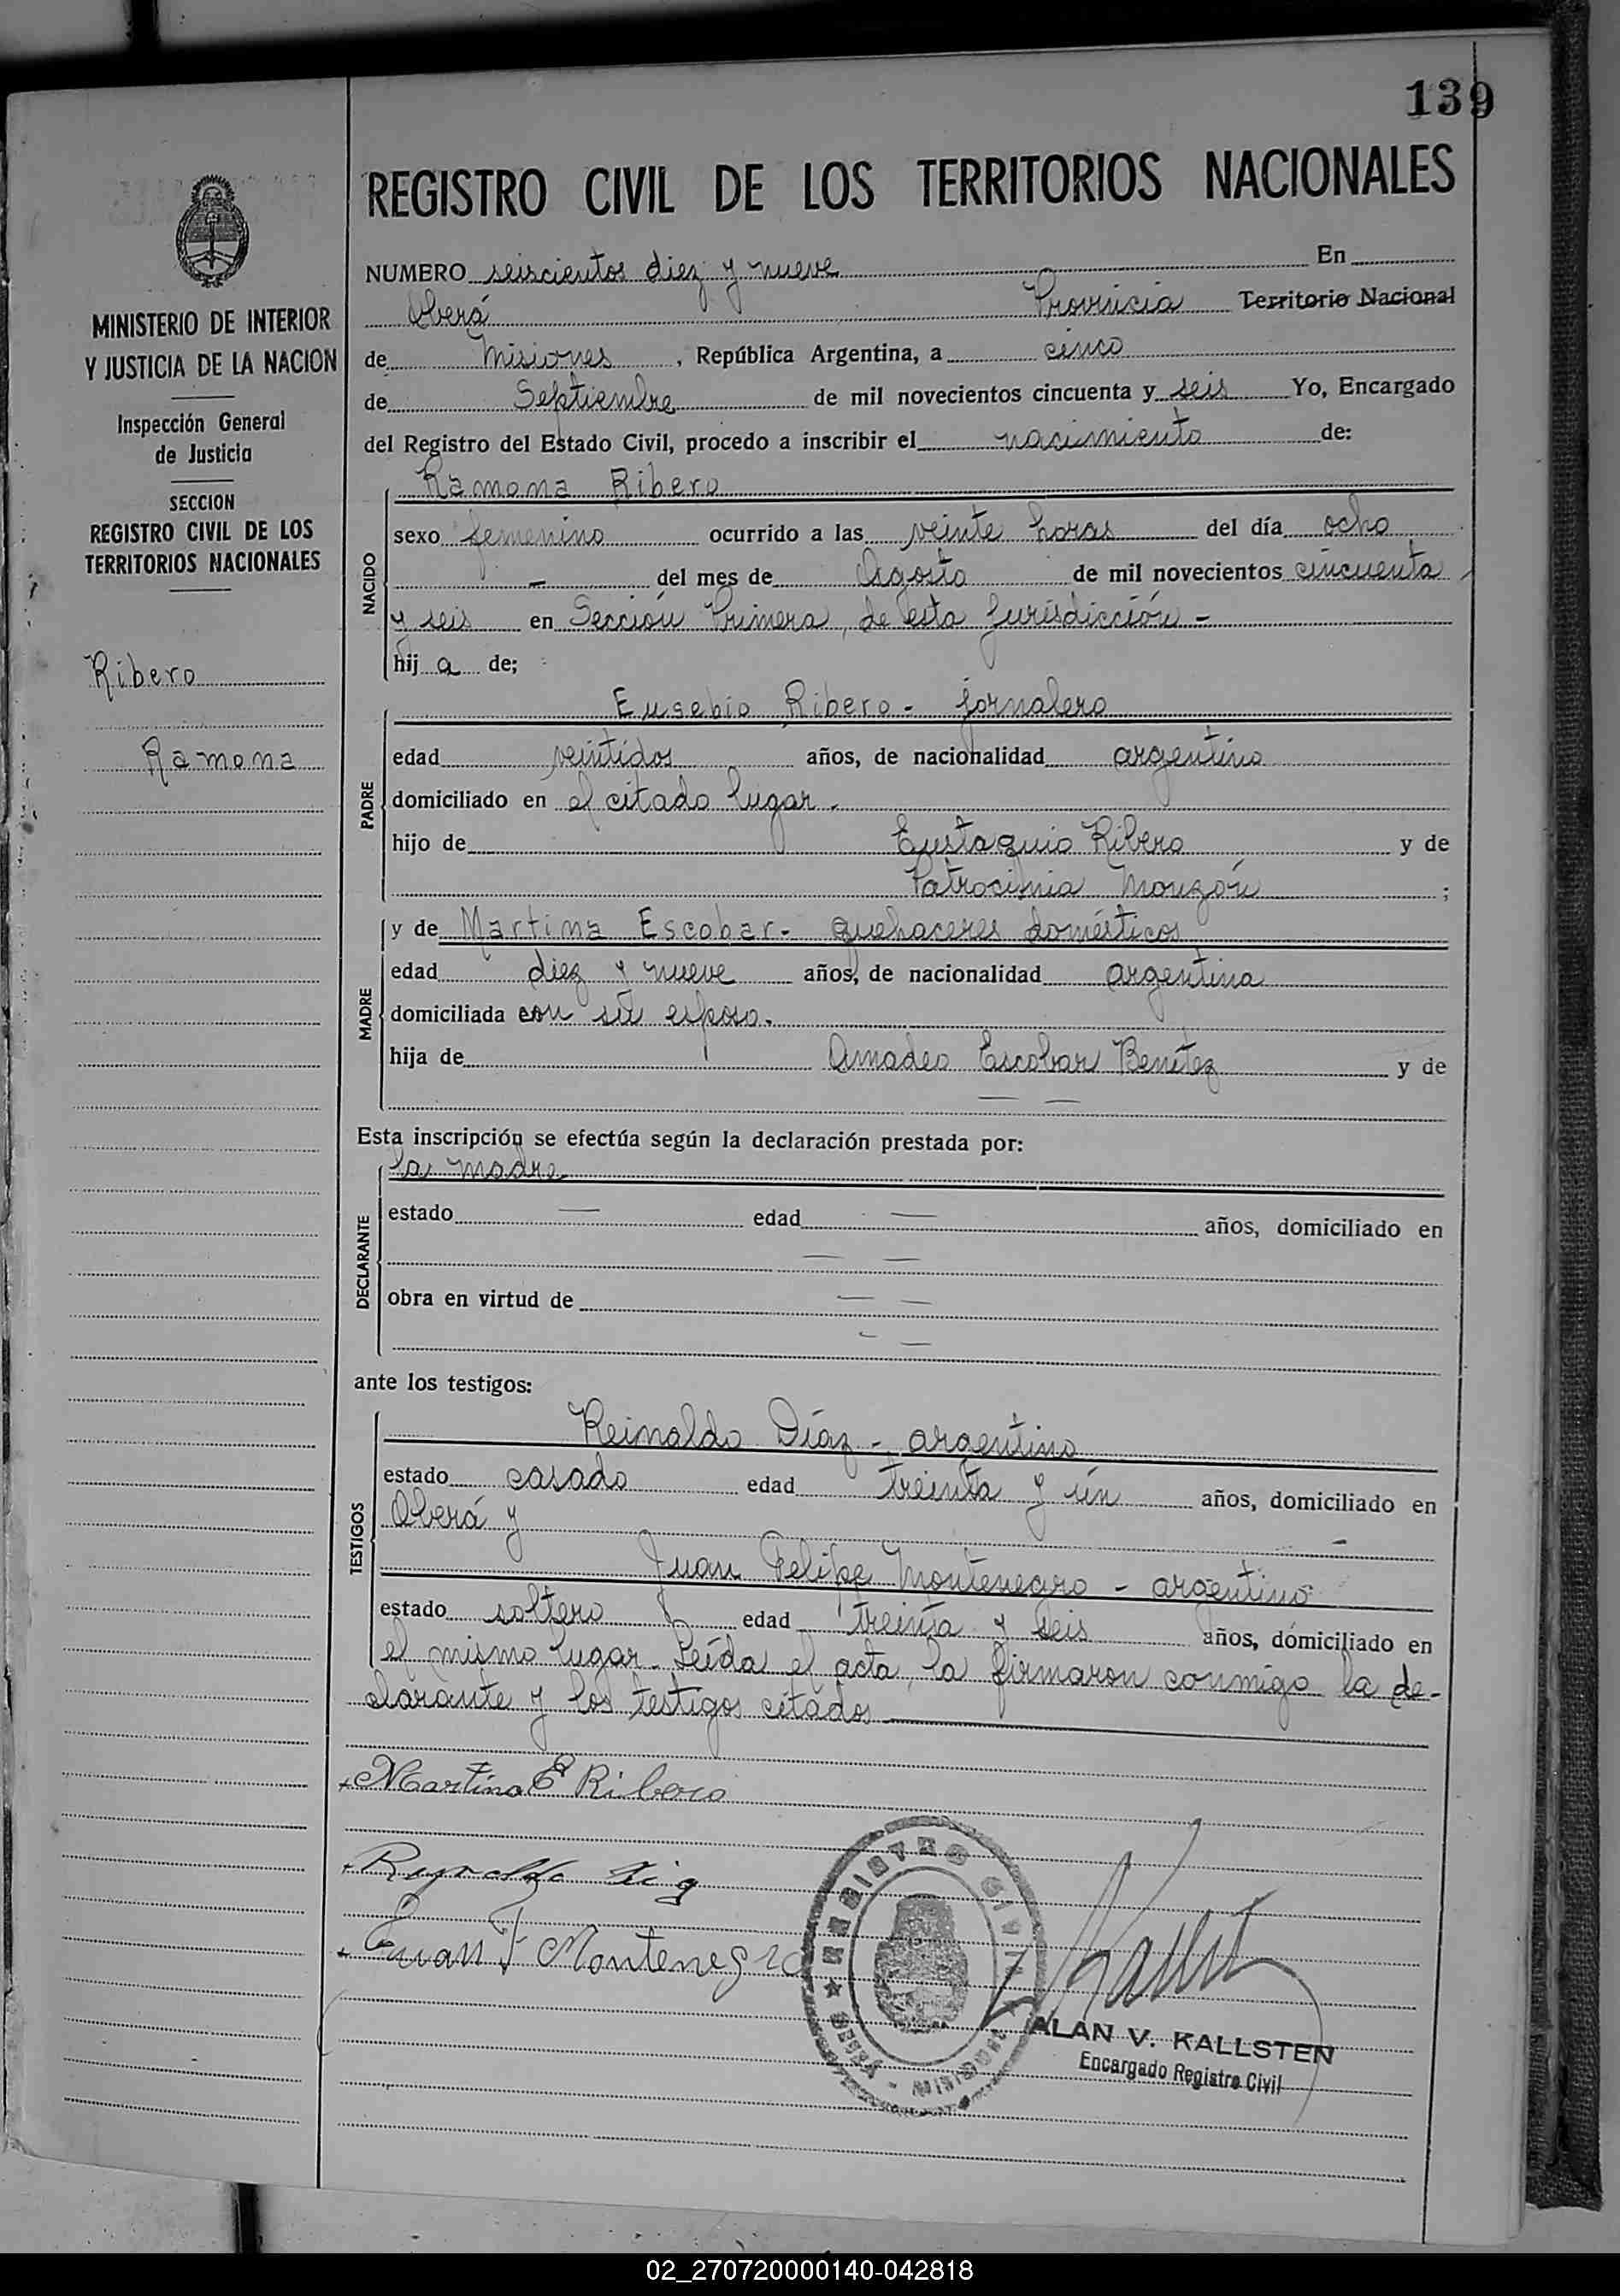 139
REGISTRO CIVIL DE LOS TERRITORIOS NACIONALES
MINISTERIO DE INTERIOR
Y JUSTICIA DE LA NACION
Inspección General
de Justicia
SECCION
REGISTRO CIVIL DE LOS
TERRITORIOS NACIONALES
Ribero
Ramona
NUMERO seiscientos diez y nueve En
Oberá Provincia Territorio Nacional
de Misiones, República Argentina, a cinco
de Septiembre de mil novecientos cincuenta y seis Yo, Encargado
del Registro del Estado Civil, procedo a inscribir el nacimiento de:
NACIDO
Ramona Ribero
sexo femenino ocurrido a las veinte horas del día ocho
— del mes de Agosto de mil novecientos cincuenta
y seis en Sección Primera, de esta Jurisdicción -
hij a de;
PADRE
Eusebio Ribero - jornalero
edad veintidos años, de nacionalidad argentino
domiciliado en el citado lugar.
hijo de Eustaquio Ribero y de
Patrocinia Monzón ;
MADRE
y de Martina Escobar - quehaceres domésticos
edad diez y nueve años, de nacionalidad argentina
domiciliada con su esposo.
hija de Amadeo Escobar Benítez y de
— —
Esta inscripción se efectúa según la declaración prestada por:
DECLARANTE
la madre
estado — edad — años, domiciliado en
— —
obra en virtud de — —
- —
ante los testigos:
TESTIGOS
Reinaldo Díaz - argentino
estado casado edad treinta y un años, domiciliado en
Oberá y -
Juan Felipe Montenegro - argentino
estado soltero edad treinta y seis años, domiciliado en
el mismo lugar. Leída el acta, la firmaron conmigo la de-
clarante y los testigos citados
Martina E Ribero
Juan F Montenegro
REGISTRO CIVIL
OBERÁ - MISIONES
ALAN V. KALLSTEN
Encargado Registro Civil
02_270720000140-042818